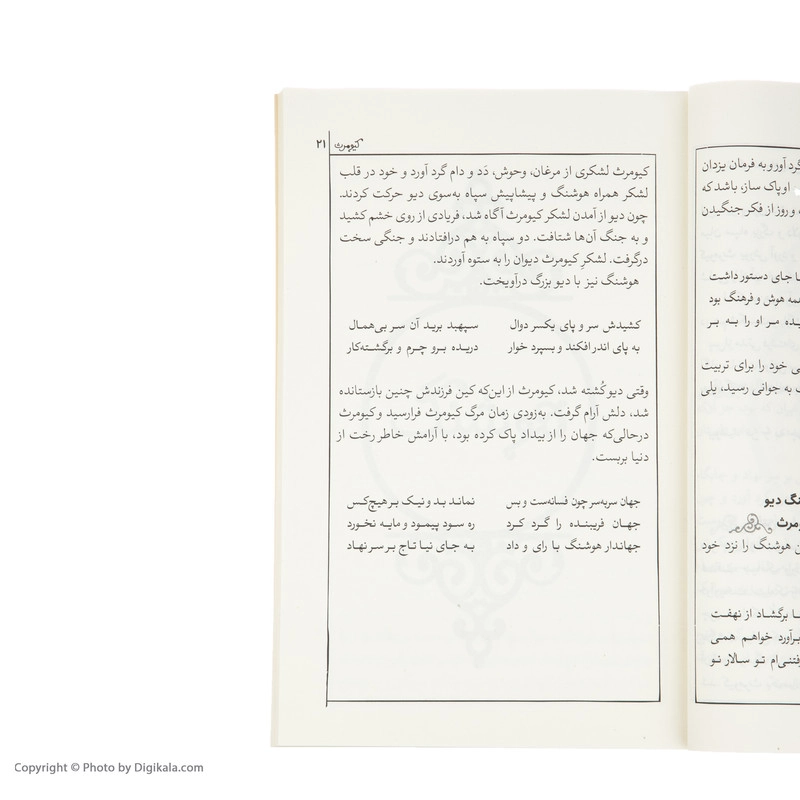 گرد آور و به فرمان یزدان
او پاک ساز، باشد که
و روز از فکر جنگیدن
جای دستور داشت
همه هوش و فرهنگ بود
مر او را به بر
خود را برای تربیت
به جوانی رسید، یلی
دیو
هوشنگ را نزد خود
برگشاد از نهفت
خواهم همی
تو سالار نو
کیومرث ۲۱
کیومرث لشکری از مرغان، وحوش، دَد و دام گرد آورد و خود در قلب
لشکر همراه هوشنگ و پیشاپیش سپاه به‌سوی دیو حرکت کردند.
چون دیو از آمدن لشکر کیومرث آگاه شد، فریادی از روی خشم کشید
و به جنگ آن‌ها شتافت. دو سپاه به هم درافتادند و جنگی سخت
درگرفت. لشکرِ کیومرث دیوان را به ستوه آوردند.
هوشنگ نیز با دیو بزرگ درآویخت.
کشیدش سر و پای یکسر دوال سپهبد برید آن سر بی‌همال
به پای اندر افکند و بسپرد خوار دریده برو چرم و برگشته‌کار
وقتی دیو کُشته شد، کیومرث از این‌که کین فرزندش چنین بازستانده
شد، دلش آرام گرفت. به‌زودی زمان مرگ کیومرث فرارسید و کیومرث
درحالی‌که جهان را از بیداد پاک کرده بود، با آرامش خاطر رخت از
دنیا بربست.
جهان سربه‌سر چون فسانه‌ست و بس نماند بد و نیک بر هیچ‌کس
جهان فریبنده را گرد کرد ره سود پیمود و مایه نخورد
جهاندار هوشنگ با رای و داد به جای نیا تاج بر سر نهاد
Copyright © Photo by Digikala.com